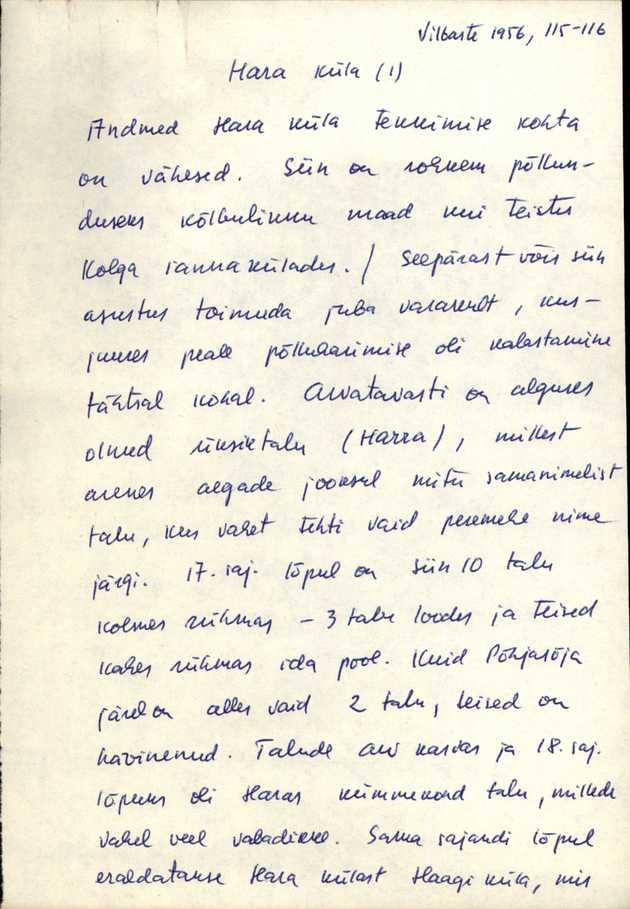 Vilbaste 1956, 115-116
Hara küla (1)
Andmed Hara küla tekkimise kohta
on vähesed. Siin on rohkem põllun-
duseks kõlbulikku maad kui teistes
Kolga rannakülades. / Seepärast võis siin
asustus toimuda juba varakult, kus-
juures peale põlluharimise oli kalastamine
tähtsal kohal. Arvatavasti on alguses
olnud üksiktalu (Harra), millest
arenes aegade jooksul mitu samanimelist
talu, kus vahet tehti vaid peremehe nime
järgi. 17. saj. lõpul on siin 10 talu
kolmes rühmas - 3 talu loodes ja teised
kahes rühmas ida pool. Kuid Põhjasõja
järel on alles vaid 2 talu, teised on
hävinenud. Talude arv kasvas ja 18. saj.
lõpuks oli Haras kümmekond talu, millede
vahel veel vabadikke. Sama sajandi lõpul
eraldatakse Hara külast Haagi küla, mis